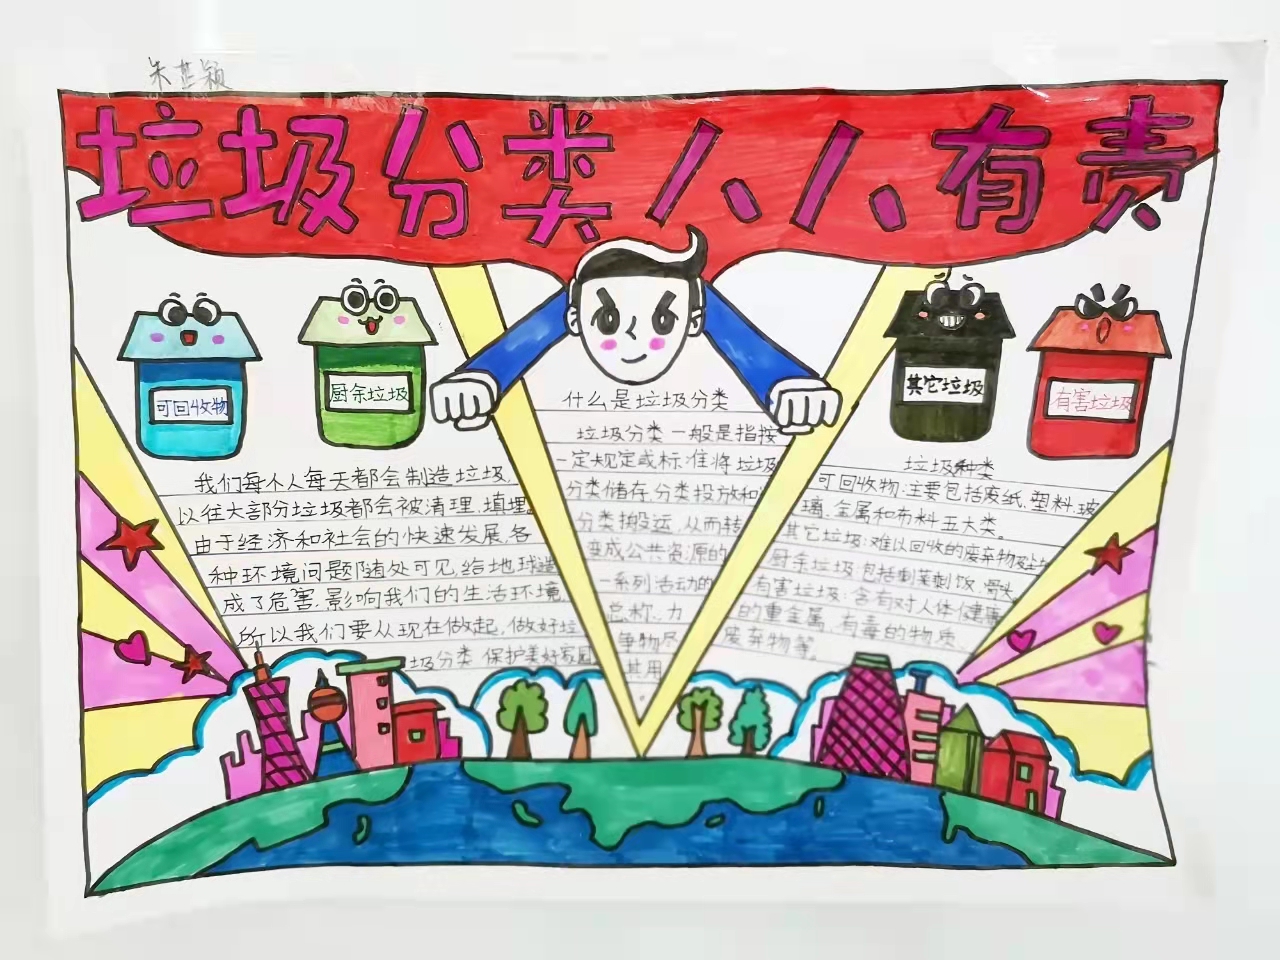 朱芷颖
垃圾分类人人有责
可回收物
厨余垃圾
其它垃圾
有害垃圾
我们每个人每天都会制造垃圾,
以往大部分垃圾都会被清理、填埋。
由于经济和社会的快速发展,各
种环境问题随处可见,给地球造
成了危害,影响我们的生活环境,
所以我们要从现在做起,做好垃
圾分类 保护美好家园
什么是垃圾分类
垃圾分类一般是指按
一定规定或标准将垃圾
分类储存、分类投放和
分类搬运,从而转
变成公共资源的
一系列活动的
总称。力
争物尽
其用
。
垃圾种类
可回收物:主要包括废纸、塑料、玻
璃、金属和布料五大类。
其它垃圾:难以回收的废弃物
厨余垃圾:包括剩菜剩饭、骨头
有害垃圾:含有对人体健康
的重金属、有毒的物质、
废弃物等。